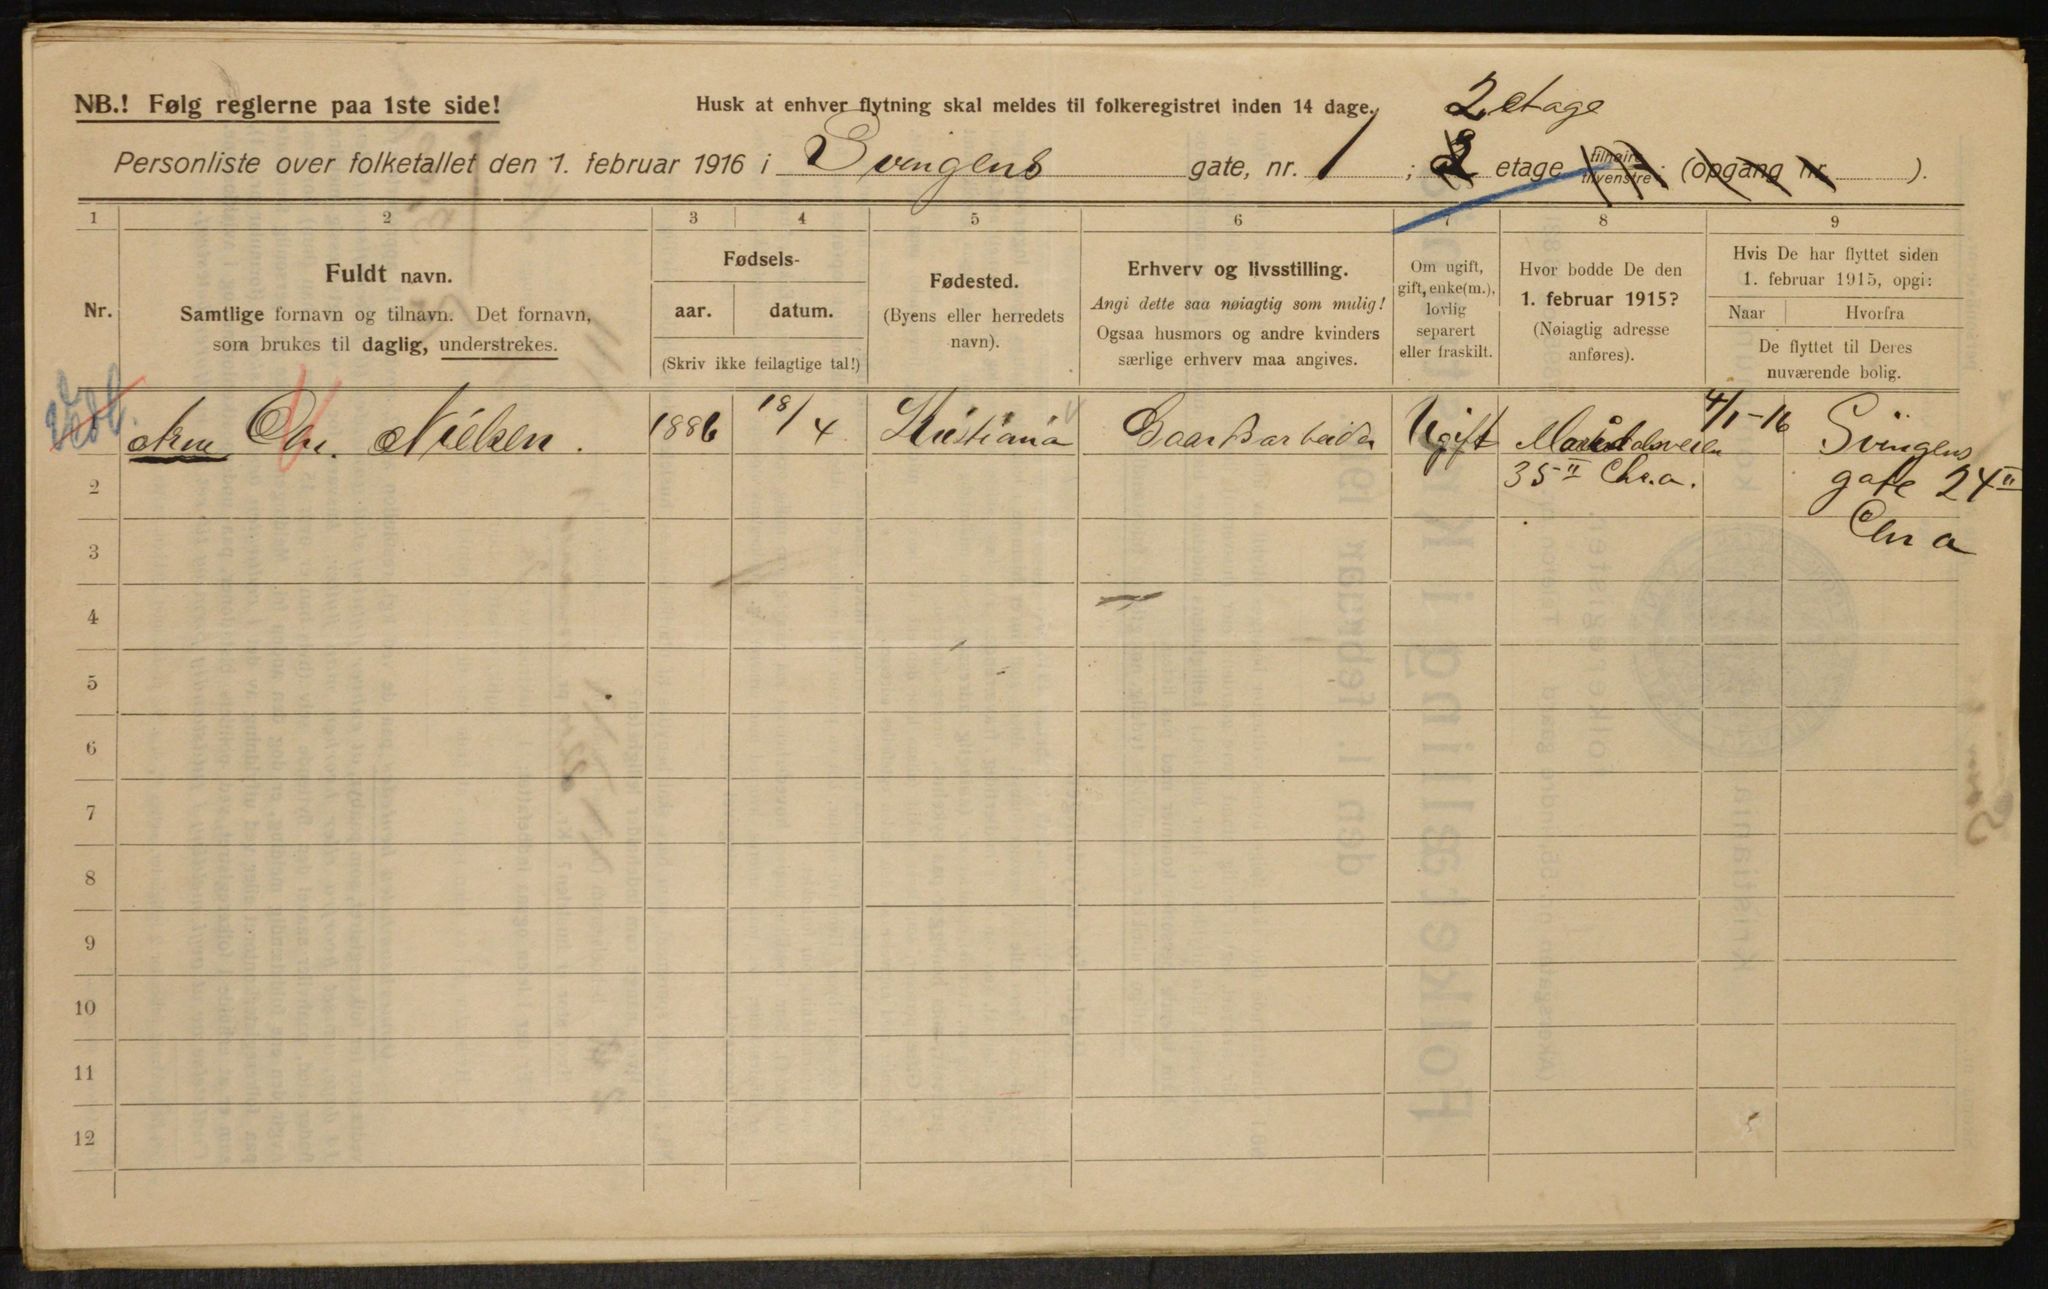 NB.! Følg reglerne paa 1ste side!
Husk at enhver flytning skal meldes til folkeregistret inden 14 dage.
2 etage
Personliste over folketallet den 1. februar 1916 i Svingens gate, nr. 1 ; etage tilhøire tilvenstre ; (opgang nr. ).
1 2 3 4 5 6 7 8 9
Nr.
Fuldt navn.
Samtlige fornavn og tilnavn. Det fornavn,
som brukes til daglig, understrekes.
Fødsels-
aar. datum.
(Skriv ikke feilagtige tal!)
Fødested.
(Byens eller herredets
navn).
Erhverv og livsstilling.
Angi dette saa nøiagtig som mulig!
Ogsaa husmors og andre kvinders
særlige erhverv maa angives.
Om ugift,
gift, enke(m.),
lovlig
separert
eller fraskilt.
Hvor bodde De den
1. februar 1915?
(Nøiagtig adresse
anføres).
Hvis De har flyttet siden
1. februar 1915, opgi:
Naar Hvorfra
De flyttet til Deres
nuværende bolig.
Arne Chr. Nielsen. 1886 18/4 Kristiania Gaardsarbeider Ugift Maridalsveien 4/1-16 Svingens
2 35 II Chr.a. gate 24 II
3 Chr a
4
5
6
7
8
9
10
11
12